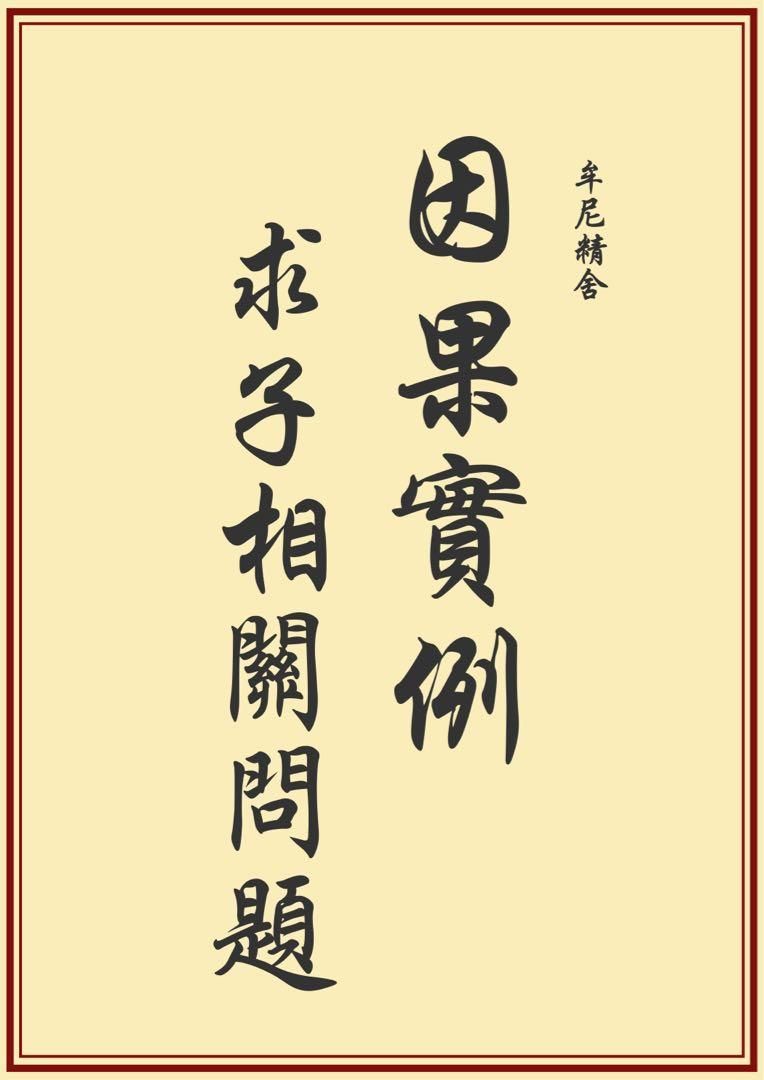 牟尼精舍
因果實例
求子相關問題